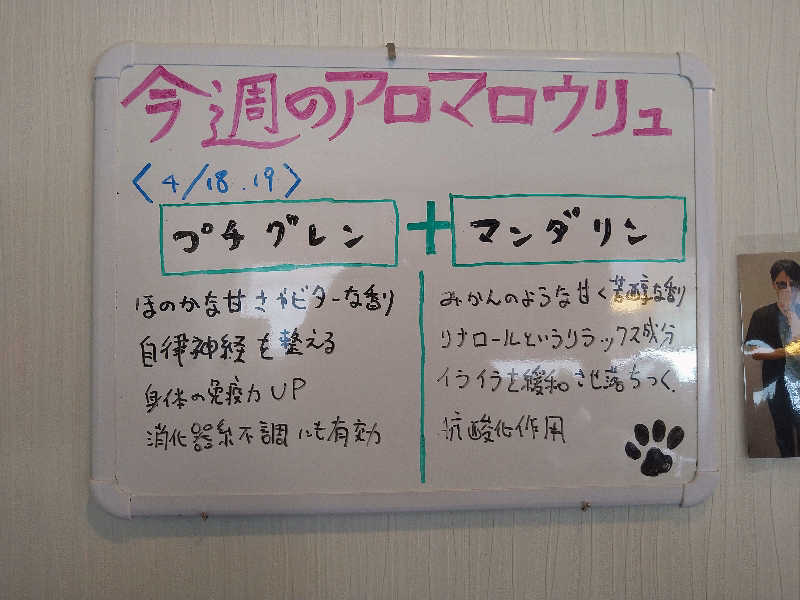 今週のアロマロウリュ
<4/18.19>
プチグレン + マンダリン
ほのかな甘さやビターな香り
自律神経を整える
身体の免疫力UP
消化器系不調にも有効
みかんのような甘く芳醇な香り
リナロールというリラックス成分
イライラを緩和させ落ちつく.
抗酸化作用